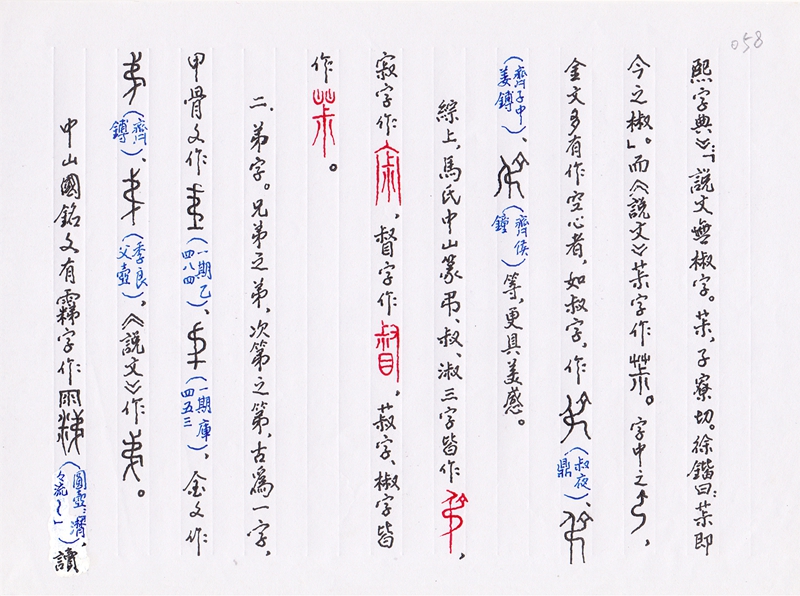 058
熙字典》:「說文無椒字。茮,子寮切。徐鍇曰:茮即
今之椒。」而《說文》茮字作。字中之,
金文多有作空心者,如叔字,作(叔夜鼎)、
(齊子中姜鎛)、(齊侯鐘)等,更具美感。
綜上,馬氏中山篆弔、叔、淑三字皆作,
寂字作,督字作,菽字、椒字皆
作。
二.弟字。兄弟之弟,次第之第,古為一字,
甲骨文作(一期乙八四四)、(一期庫四五三),金文作
(齊鎛)、(季良父壺),《說文》作。
中山國銘文有字作(圓壺:潸,々流),讀